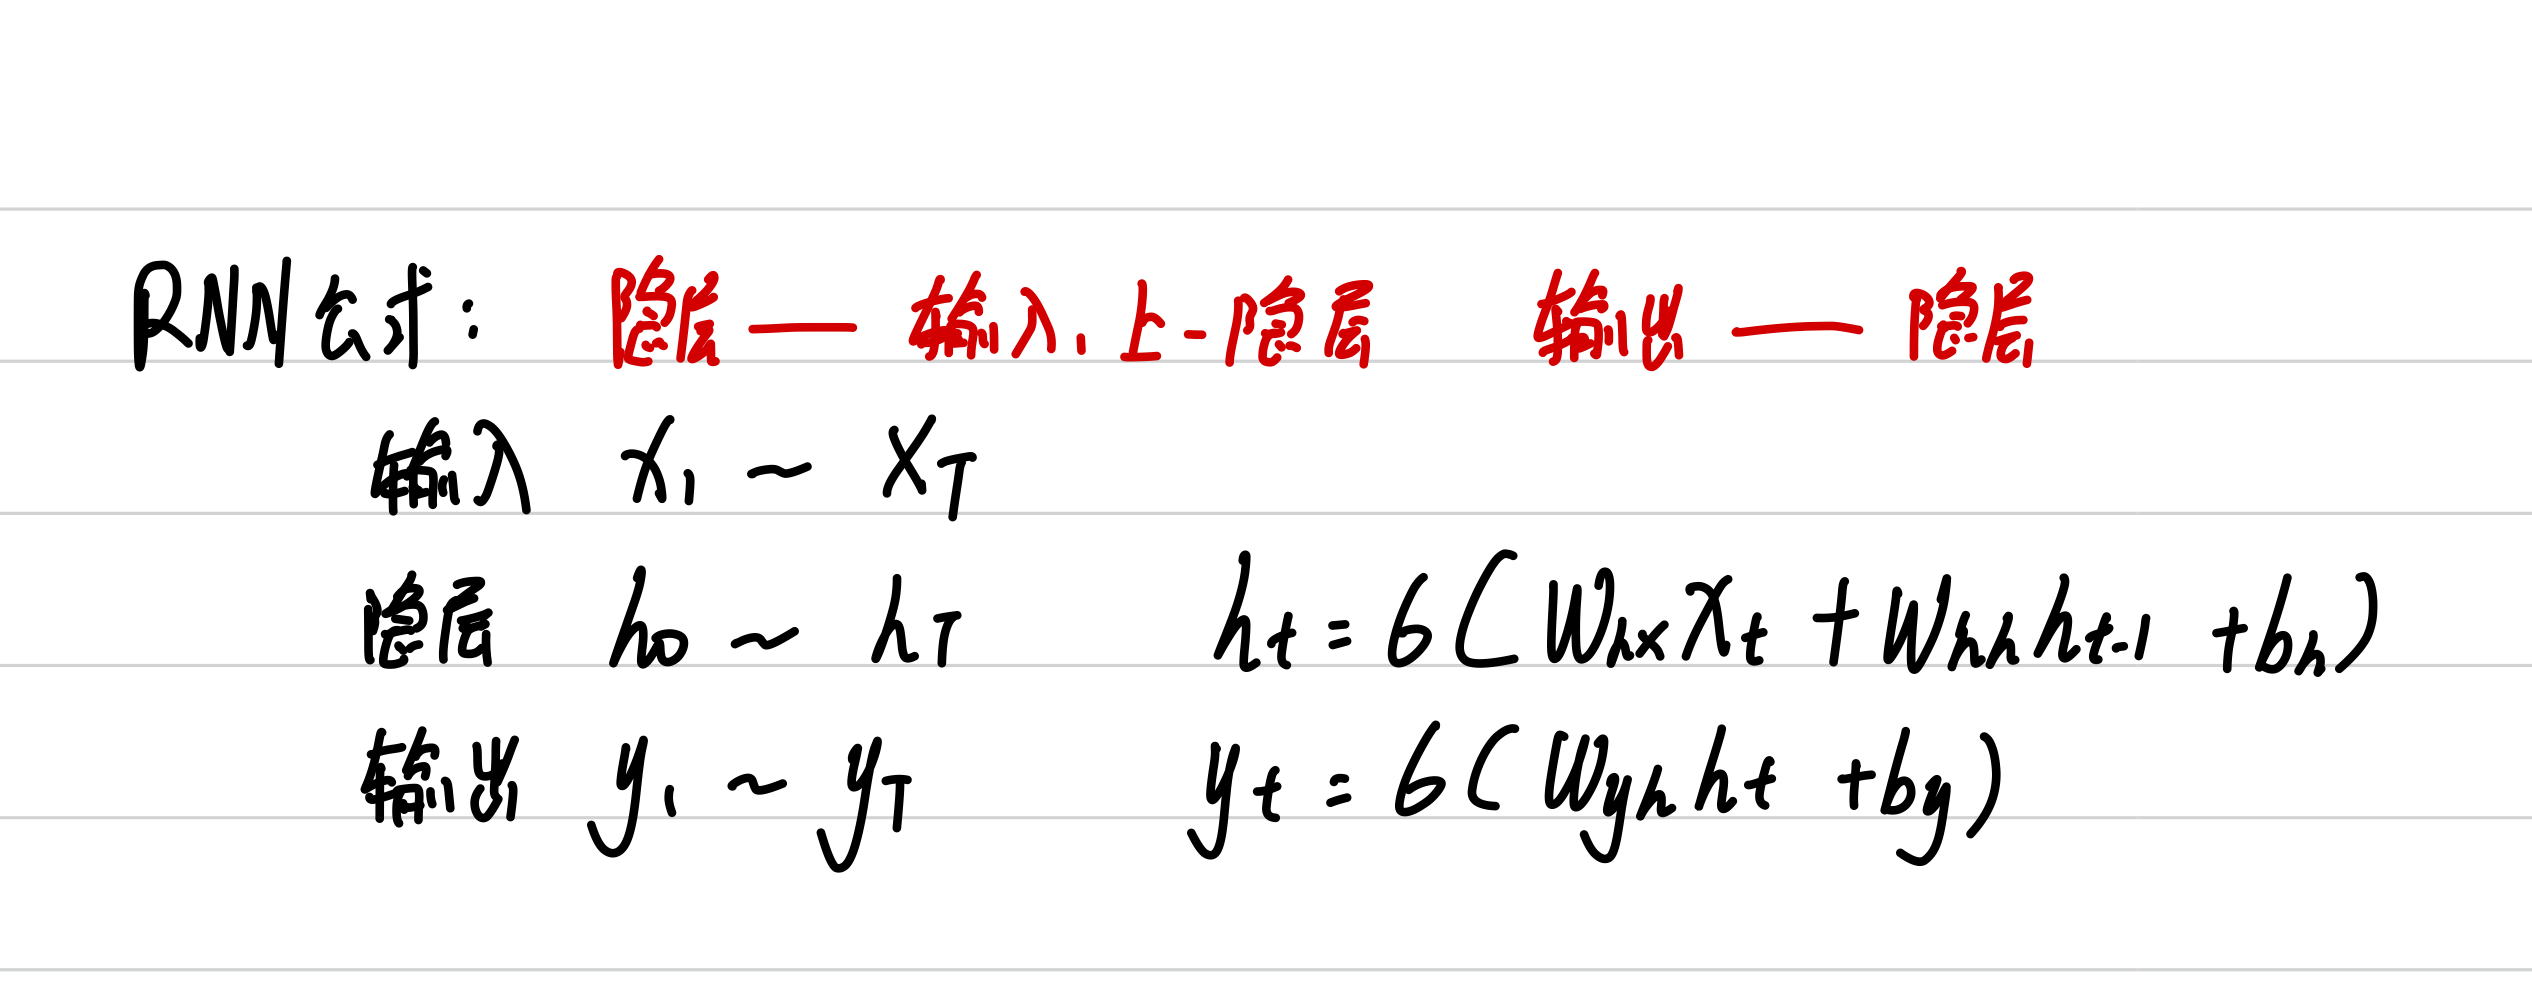 RNN公式：隐层 — 输入、上-隐层 输出 — 隐层
输入 x₁ ~ x_T
隐层 h₀ ~ h_T h_t = 6(W_hx x_t + W_hh h_t-1 + b_h)
输出 y₁ ~ y_T y_t = 6(W_yh h_t + b_y)